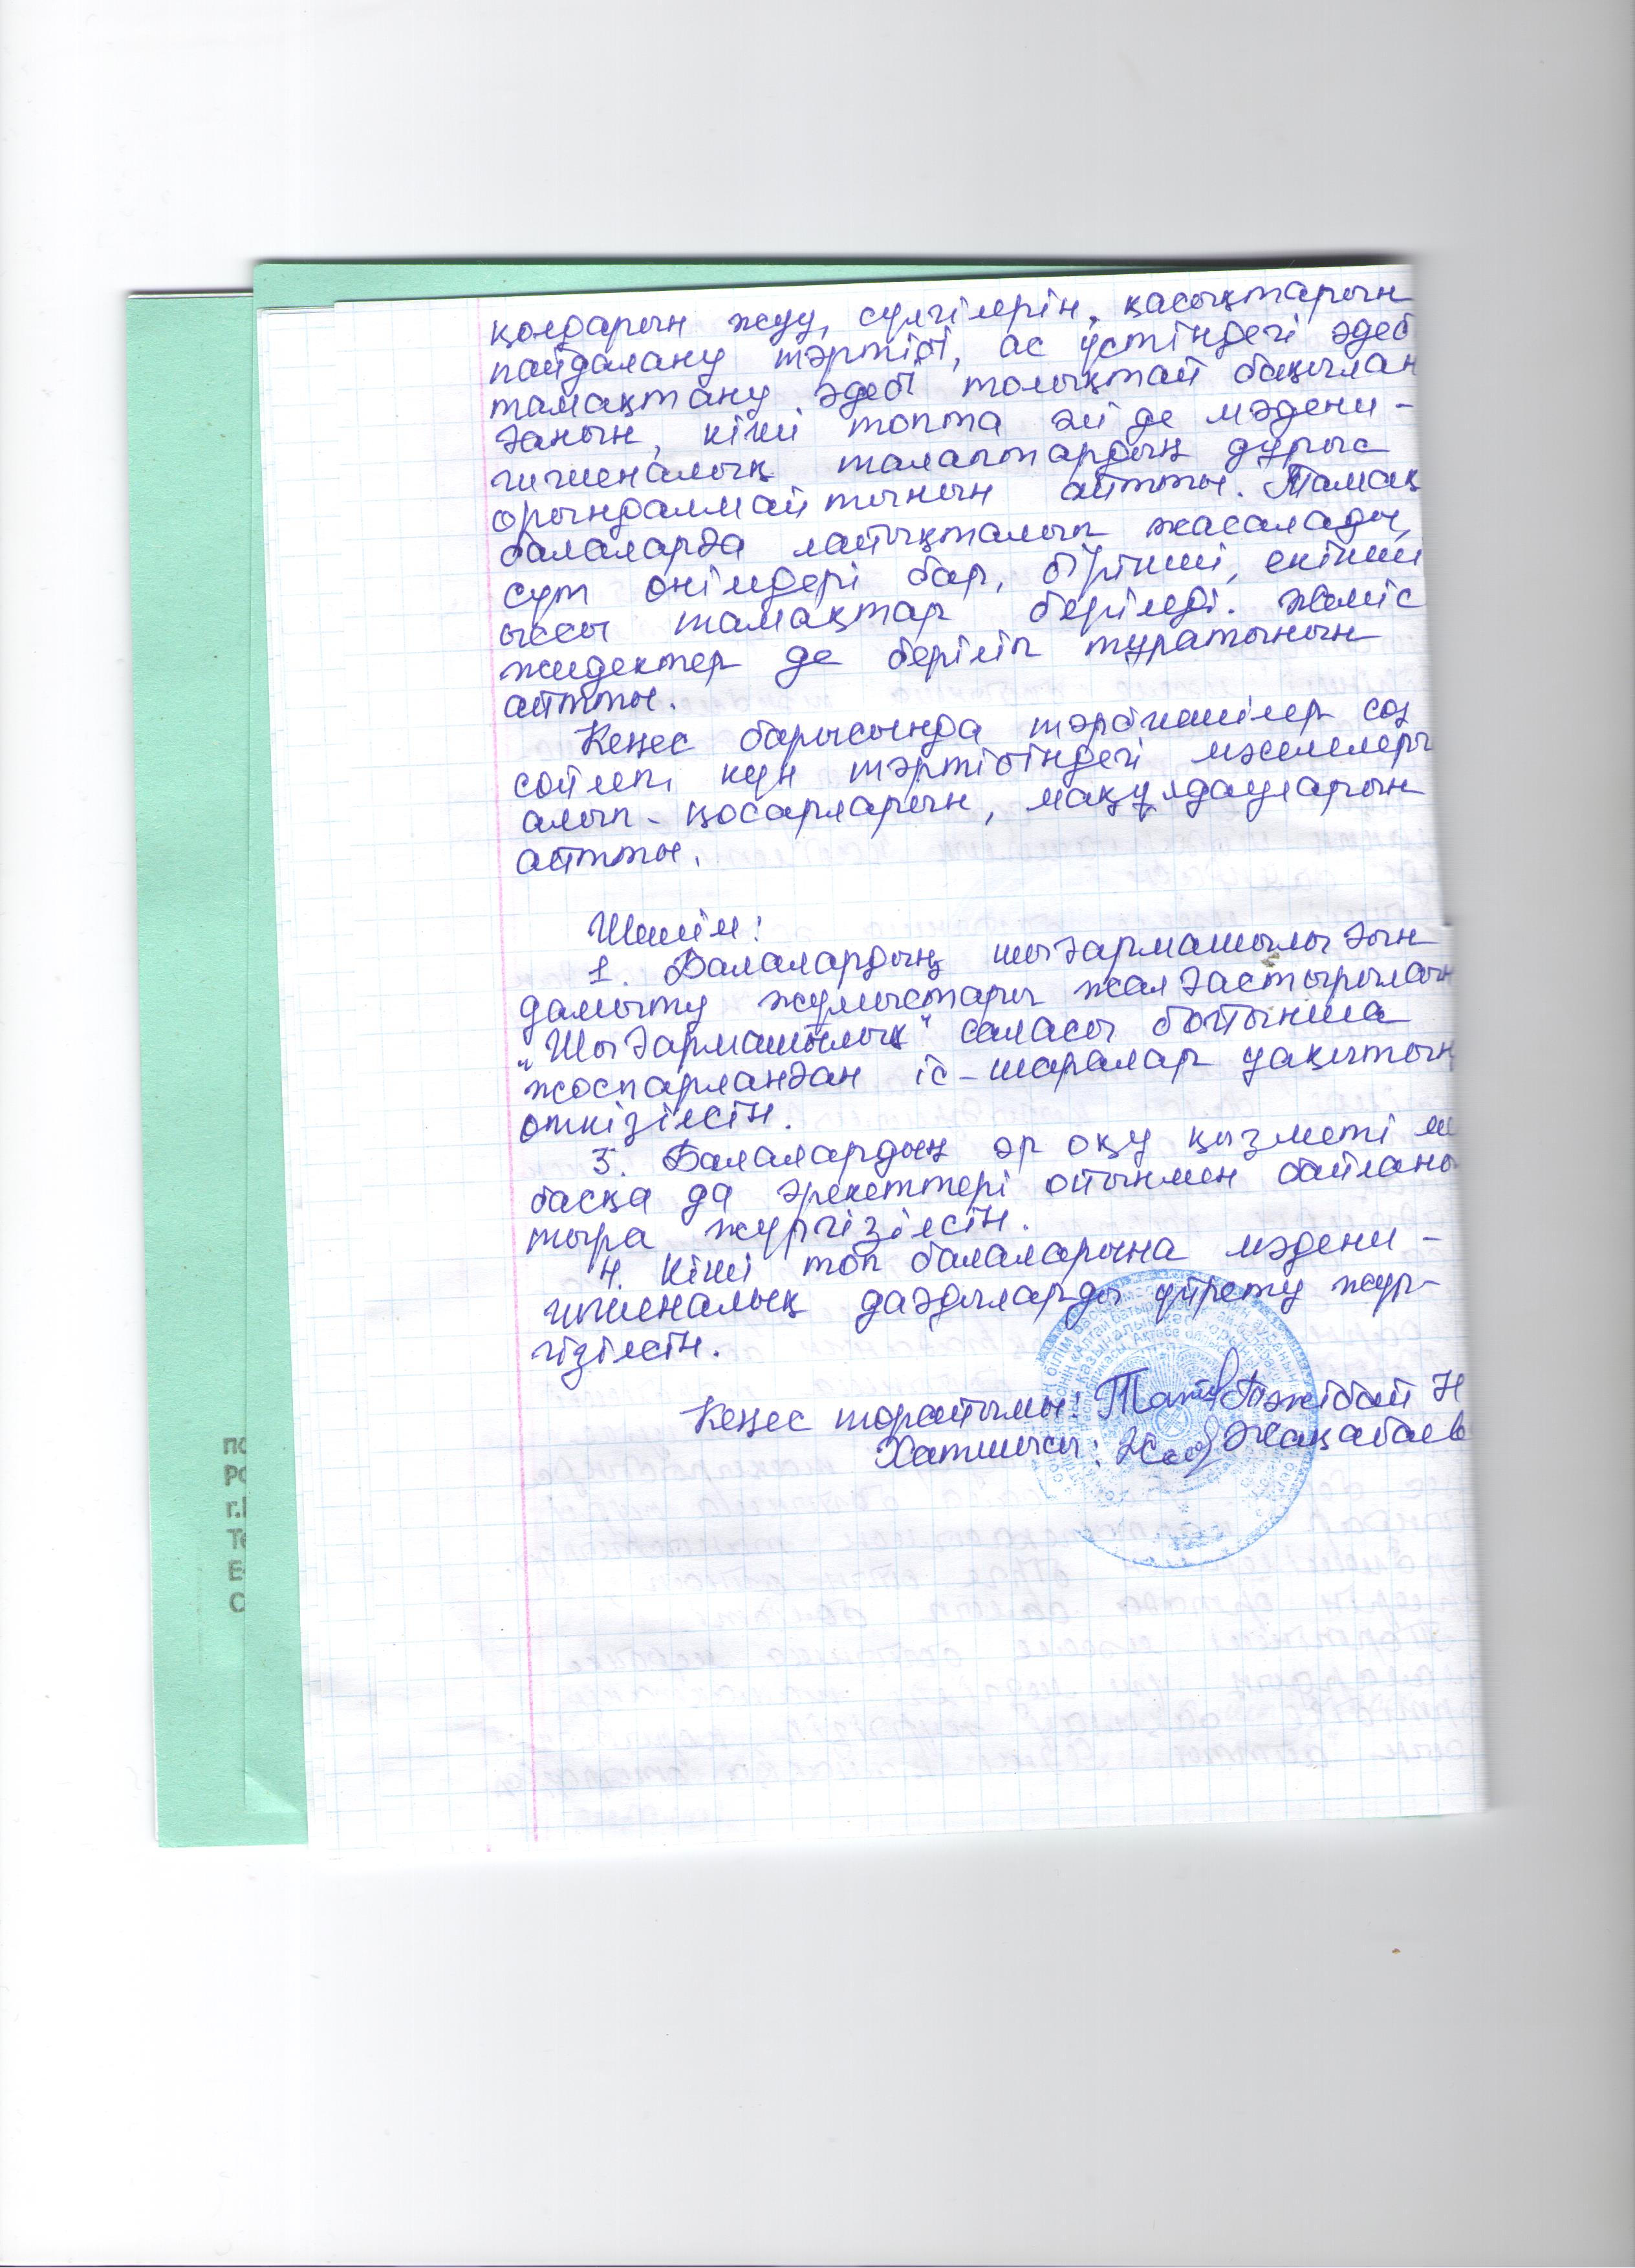 қолдарын жуу, сүлгілерін, қасықтарын
пайдалану тәртібі, ас үстіндегі әдеб
тамақтану әдебі толықтай бақылан
ғанын, кіші топта әлі де мәдени -
гигиеналық талаптардың дұрыс
орындалмайтынын айтты. Тамақ
балаларға лайықталып жасалады,
сүт өнімдері бар, бірінші, екінші
ыссы тамақтар беріледі. Жеміс
жидектер де беріліп тұратынын
айтты.
Кеңес барысында тәрбиешілер сөз
сөйлеп, күн тәртібіндегі мәселелерг
алып - қосарларын, мақұлдауларын
айтты.
Шешім:
1. Балалардың шығармашылығын
дамыту жұмыстары жалғастырылсын
"Шығармашылық" саласы бойынша
жоспарланған іс-шаралар уақытын
өткізілсін.
3. Балалардың әр оқу қызметі м
басқа да әрекеттері ойынмен байланы
тыра жүргізілсін.
4. Кіші топ балаларына мәдени -
гигиеналық дағдыларды үйрету жүр-
гізілсін.
Кеңес төрайымы: Тәжібай Н
Хатшысы: Жақабаев
ПО
РО
г.
Те
E-
С